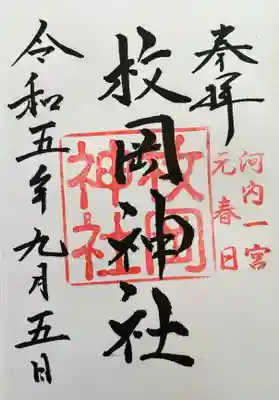 奉拝
河内一宮
元春日
枚岡神社
枚岡神社
令和五年九月五日